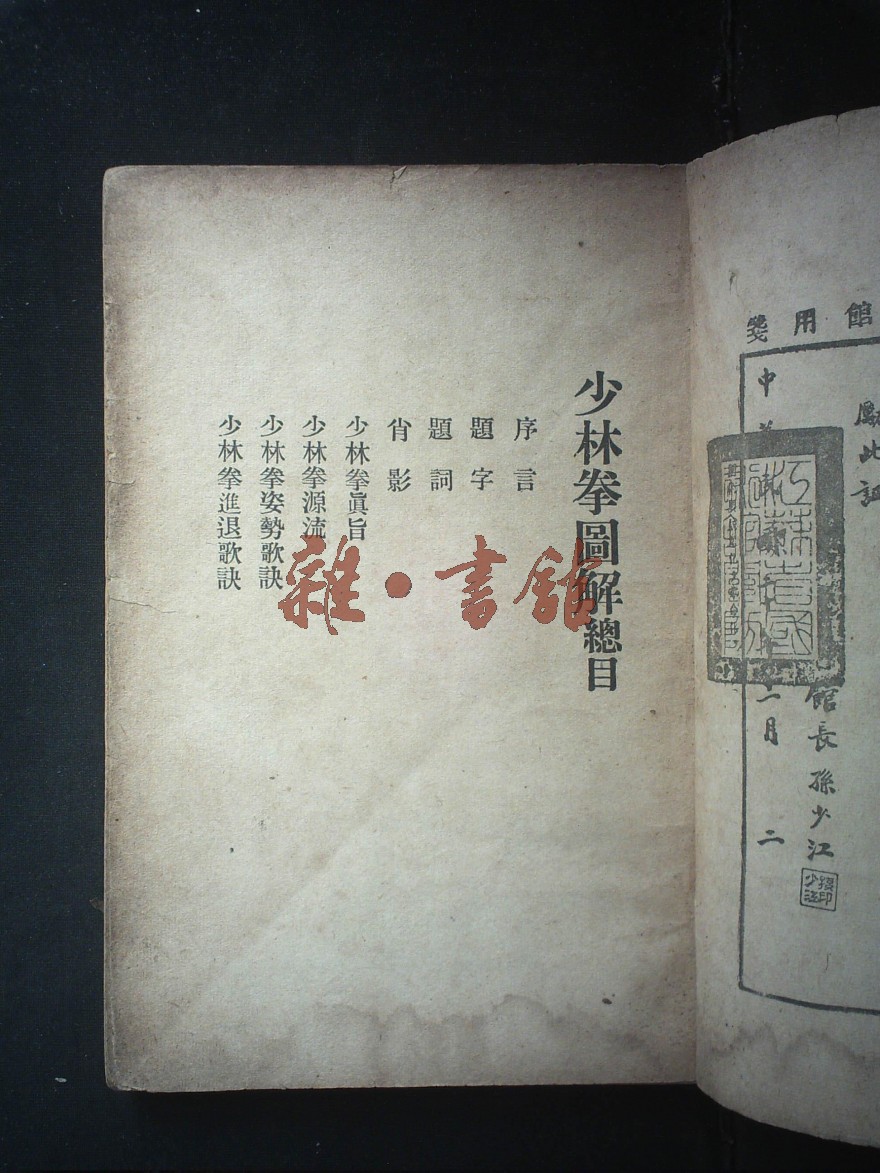 館用箋
勵此証
館長孫少江
中
二月
二
少林拳圖解總目
序言
題字
題詞
肖影
少林拳眞旨
少林拳源流
少林拳姿勢歌訣
少林拳進退歌訣
雜·書館